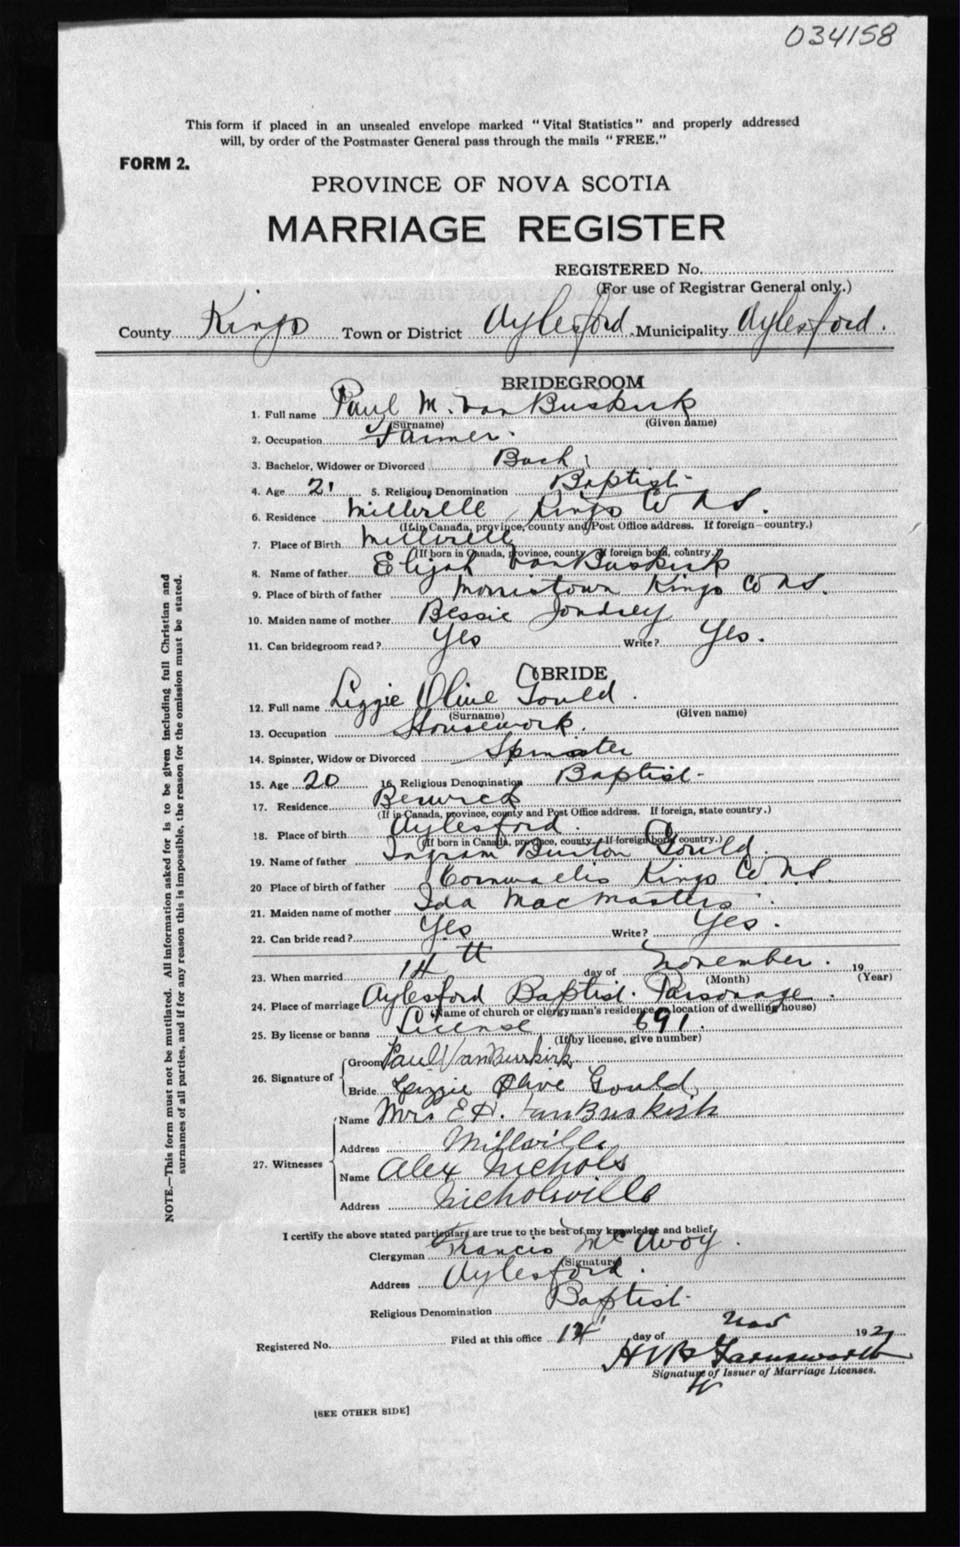 034158
This form if placed in an unsealed envelope marked "Vital Statistics" and properly addressed
will, by order of the Postmaster General pass through the mails "FREE."
FORM 2.
PROVINCE OF NOVA SCOTIA
MARRIAGE REGISTER
REGISTERED No.
(For use of Registrar General only.)
County Kings Town or District Aylesford Municipality Aylesford.
BRIDEGROOM
1. Full name Paul M. VanBuskirk
(Surname) (Given name)
2. Occupation Farmer.
3. Bachelor, Widower or Divorced Bach
4. Age 21 5. Religious Denomination Baptist
6. Residence Millville Kings Co N.S.
(If in Canada, province, county and Post Office address. If foreign—country.)
7. Place of Birth Millville
(If born in Canada, province, county. If foreign born, country.)
8. Name of father Elijah VanBuskirk
9. Place of birth of father Morristown Kings Co N.S.
10. Maiden name of mother Bessie
11. Can bridegroom read? Yes Write? Yes.
BRIDE
12. Full name Lizzie Olive Gould.
(Surname) (Given name)
13. Occupation Housework.
14. Spinster, Widow or Divorced Spinster
15. Age 20 16. Religious Denomination Baptist
17. Residence Berwick
(If in Canada, province, county and Post Office address. If foreign, state country.)
18. Place of birth Aylesford.
(If born in Canada, province, county. If foreign born, country.)
19. Name of father Ingram Burton Gould.
20 Place of birth of father Cornwallis Kings Co N.S.
21. Maiden name of mother Ida MacMasters
22. Can bride read? Yes Write? Yes.
23. When married 14th day of November. 19
(Month) (Year)
24. Place of marriage Aylesford Baptist Parsonage.
(Name of church or clergyman's residence or location of dwelling house)
25. By license or banns License 691.
(If by license, give number)
26. Signature of
Groom Paul VanBuskirk
Bride Lizzie Olive Gould.
27. Witnesses
Name Mrs. E.H. VanBuskirk
Address Millville
Name Alex Nichols
Address Nicholsville
I certify the above stated particulars are true to the best of my knowledge and belief.
Clergyman Francis McAvoy.
(Signature)
Address Aylesford.
Religious Denomination Baptist
Registered No. Filed at this office 14 day of Nov 192
H V B Farnsworth
Signature of Issuer of Marriage Licenses.
[SEE OTHER SIDE]
NOTE.—This form must not be mutilated. All information asked for is to be given including full Christian and
surnames of all parties, and if for any reason this is impossible, the reason for the omission must be stated.